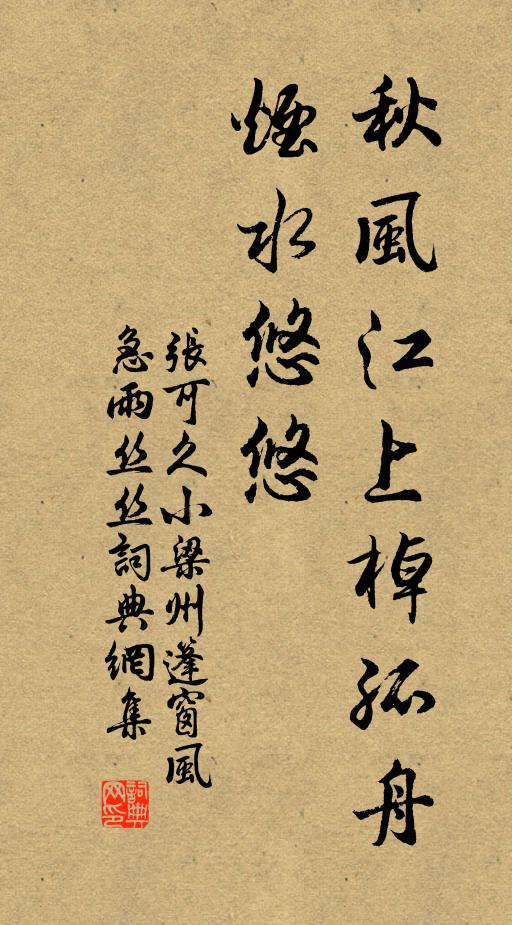 秋風江上棹孤舟
煙水悠悠
張可久小梁州蓬窗風
急雨丝丝詞典網集
詞典
网印